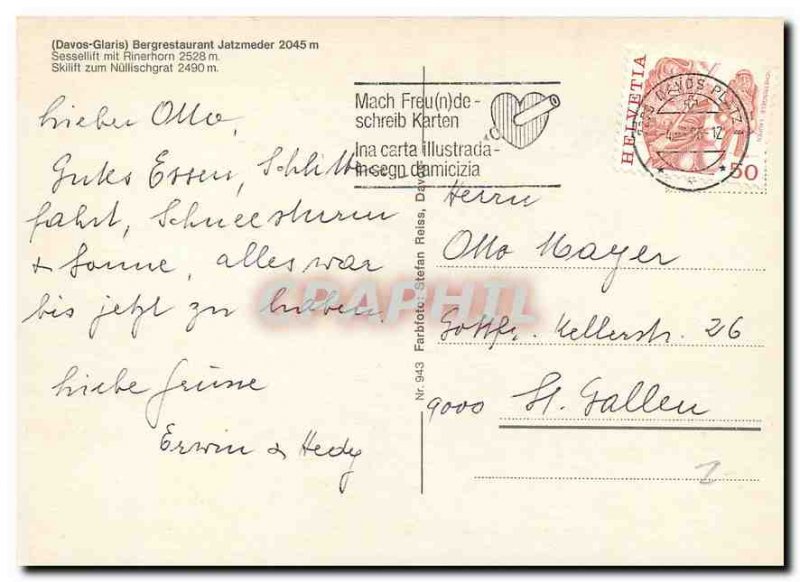 (Davos-Glaris) Bergrestaurant Jatzmeder 2045 m
Sessellift mit Rinerhorn 2528 m.
Skilift zum Nüllischgrat 2490 m.
Lieber Otto,
Gutes Essen, Schlitten-
fahrt, Schneesturm
& Sonne, alles war
bis jetzt zu haben.
Liebe Grüsse
Erwin & Hedy
Mach Freu(n)de -
schreib Karten
Ina carta illustrada -
insegn d'amicizia
HELVETIA
50
DAVOS PLATZ 1
Nr. 943 Farbfoto: Stefan Reiss, Davos
Herrn
Otto Mayer
Gottfr. Kellerstr. 26
9000 St. Gallen
GRAPHIL